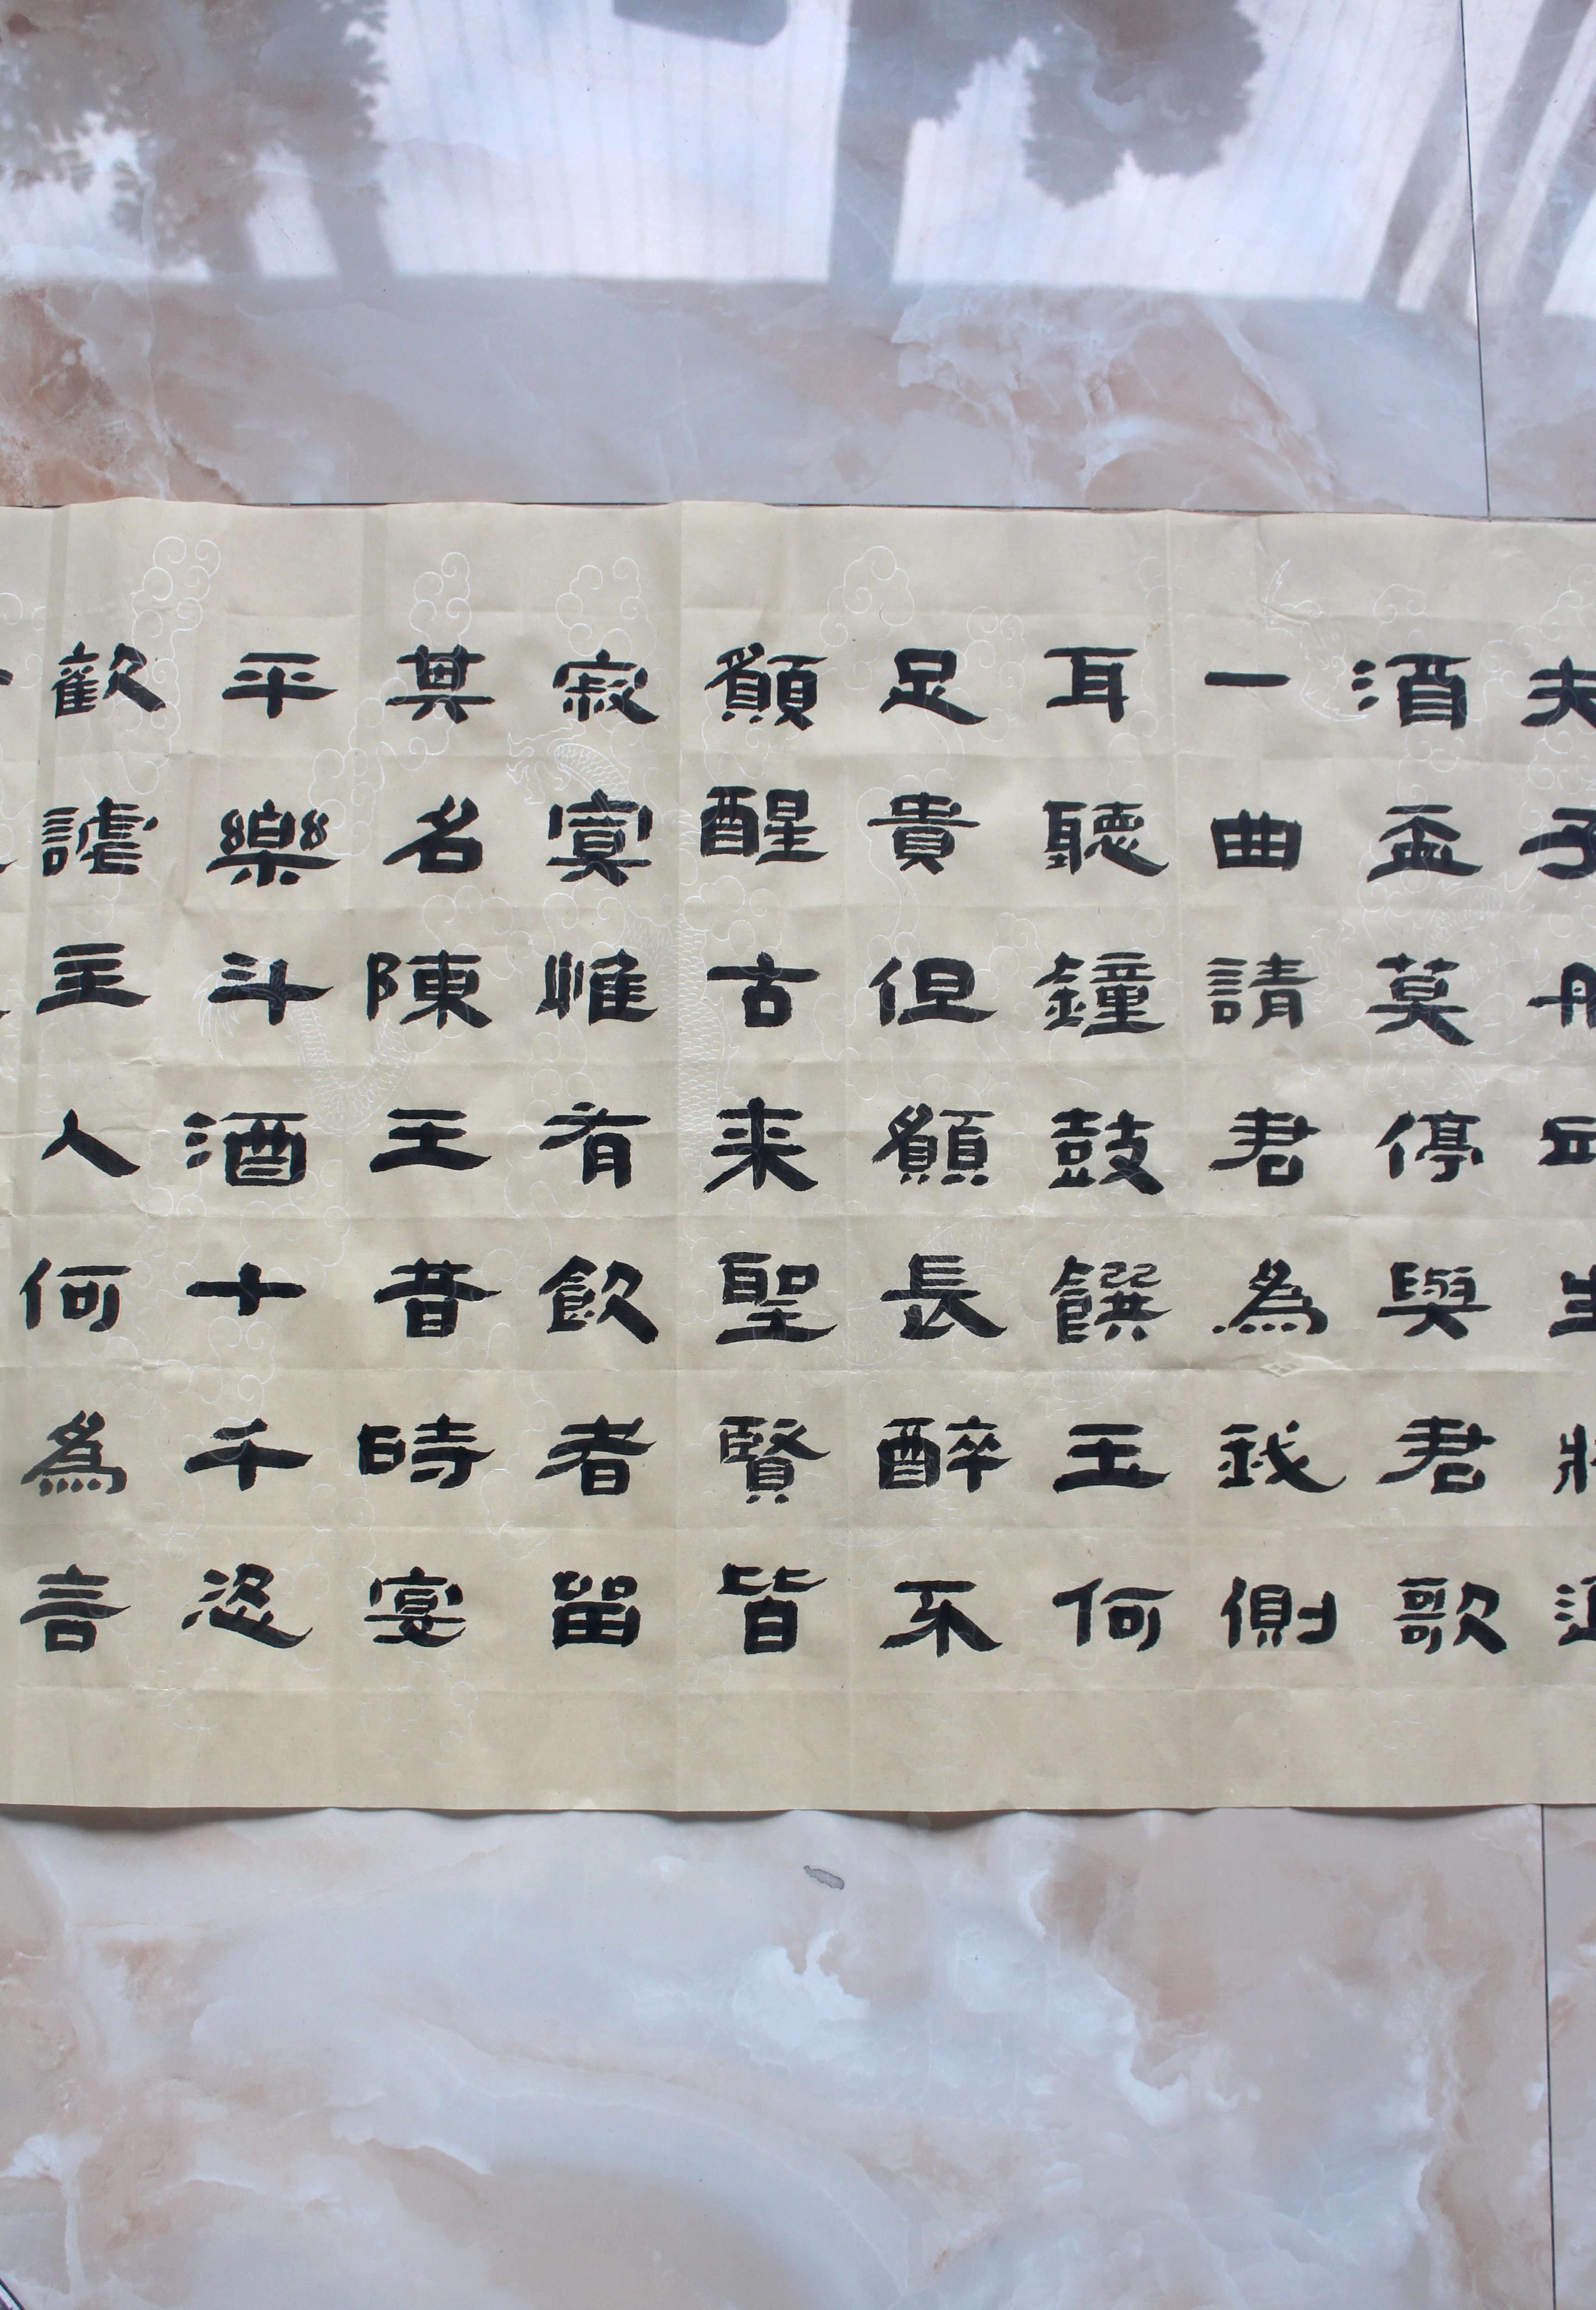 夫子丹丘生將進
酒盃莫停與君歌
一曲請君為我側
耳聽鐘鼓饌玉何
足貴但願長醉不
願醒古来聖賢皆
寂寞惟有飲者留
其名陳王昔時宴
平樂斗酒十千恣
歡謔主人何為言